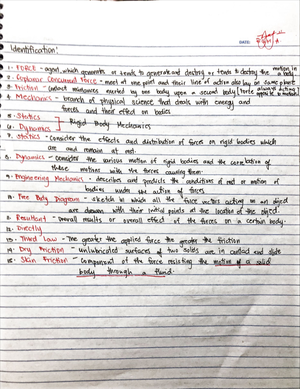 DATE:
Identification:
1. FORCE - agent which generates or tends to generate and destroy or tends to destroy the motion in a body
2. Coplanar Concurrent force - meet at one point and their line of action also lay on same plane
3. Friction - contact resistance exerted by one body upon a second body (force always acting opposite to motion)
4. Mechanics - branch of physical science that deals with energy and
forces and their effect on bodies
5. Statics
6. Dynamics } Rigid Body Mechanics
7. Statics - Consider the effects and distribution of forces on rigid bodies which
are and remain at rest.
8. Dynamics - Consider the various motion of rigid bodies and the correlation of
these motions with the forces causing them
9. Engineering Mechanics - describes and predicts the conditions of rest or motion of
bodies under the action of forces
10. Free Body Diagram - sketch in which all the force vectors acting on an object
are drawn with their initial points at the location of the object.
11. Resultant - overall results or overall effect of the forces on a certain body.
12. Directly
13. Third Law - The greater the applied force the greater the friction
14. Dry Friction - unlubricated surfaces of two solids are in contact and slide
15. Skin Friction - component of the force resisting the motion of a solid
body through a fluid.